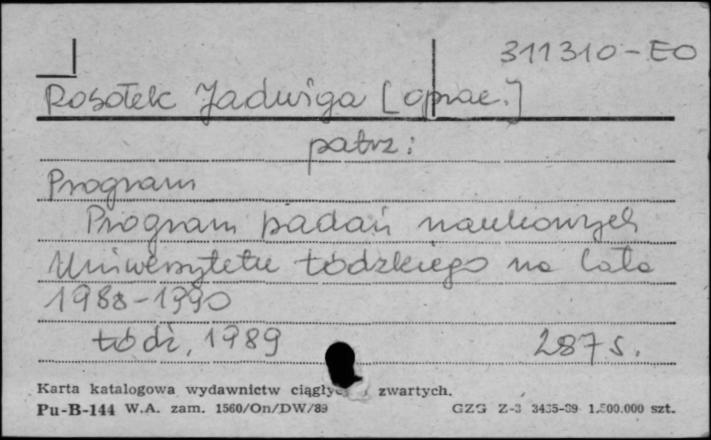 311310-EO
Rosołek Jadwiga [oprac.]
patrz:
Program
Program badań naukowych
Uniwersytetu Łódzkiego na lata
1988-1990
Łódź, 1989 287 s.
Karta katalogowa wydawnictw zwartych.
Pu-B-144 W.A. zam. 1560/On/DW/89 GZG Z-3 3435-89 1.500.000 szt.